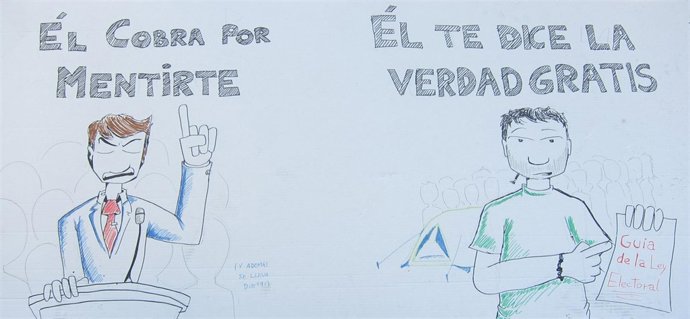 ÉL COBRA POR
MENTIRTE
ÉL TE DICE LA
VERDAD GRATIS
(Y ADEMÁS
SE LLEVA
Guía
de la Ley
Electoral